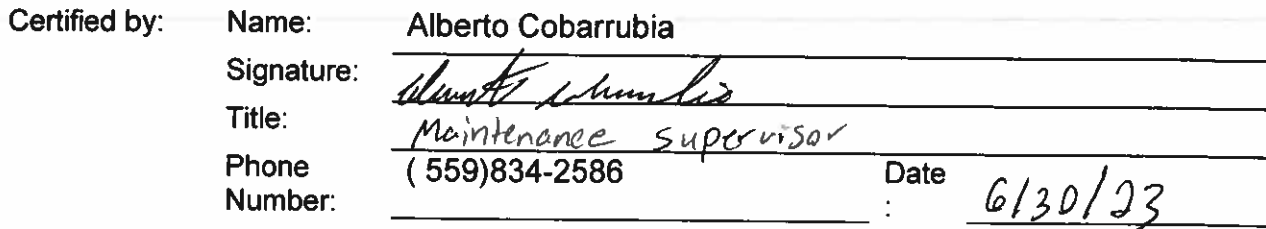 Certified by: Name: Alberto Cobarrubia
Signature:
Title: Maintenance supervisor
Phone ( 559)834-2586 Date 6/30/23
Number: :